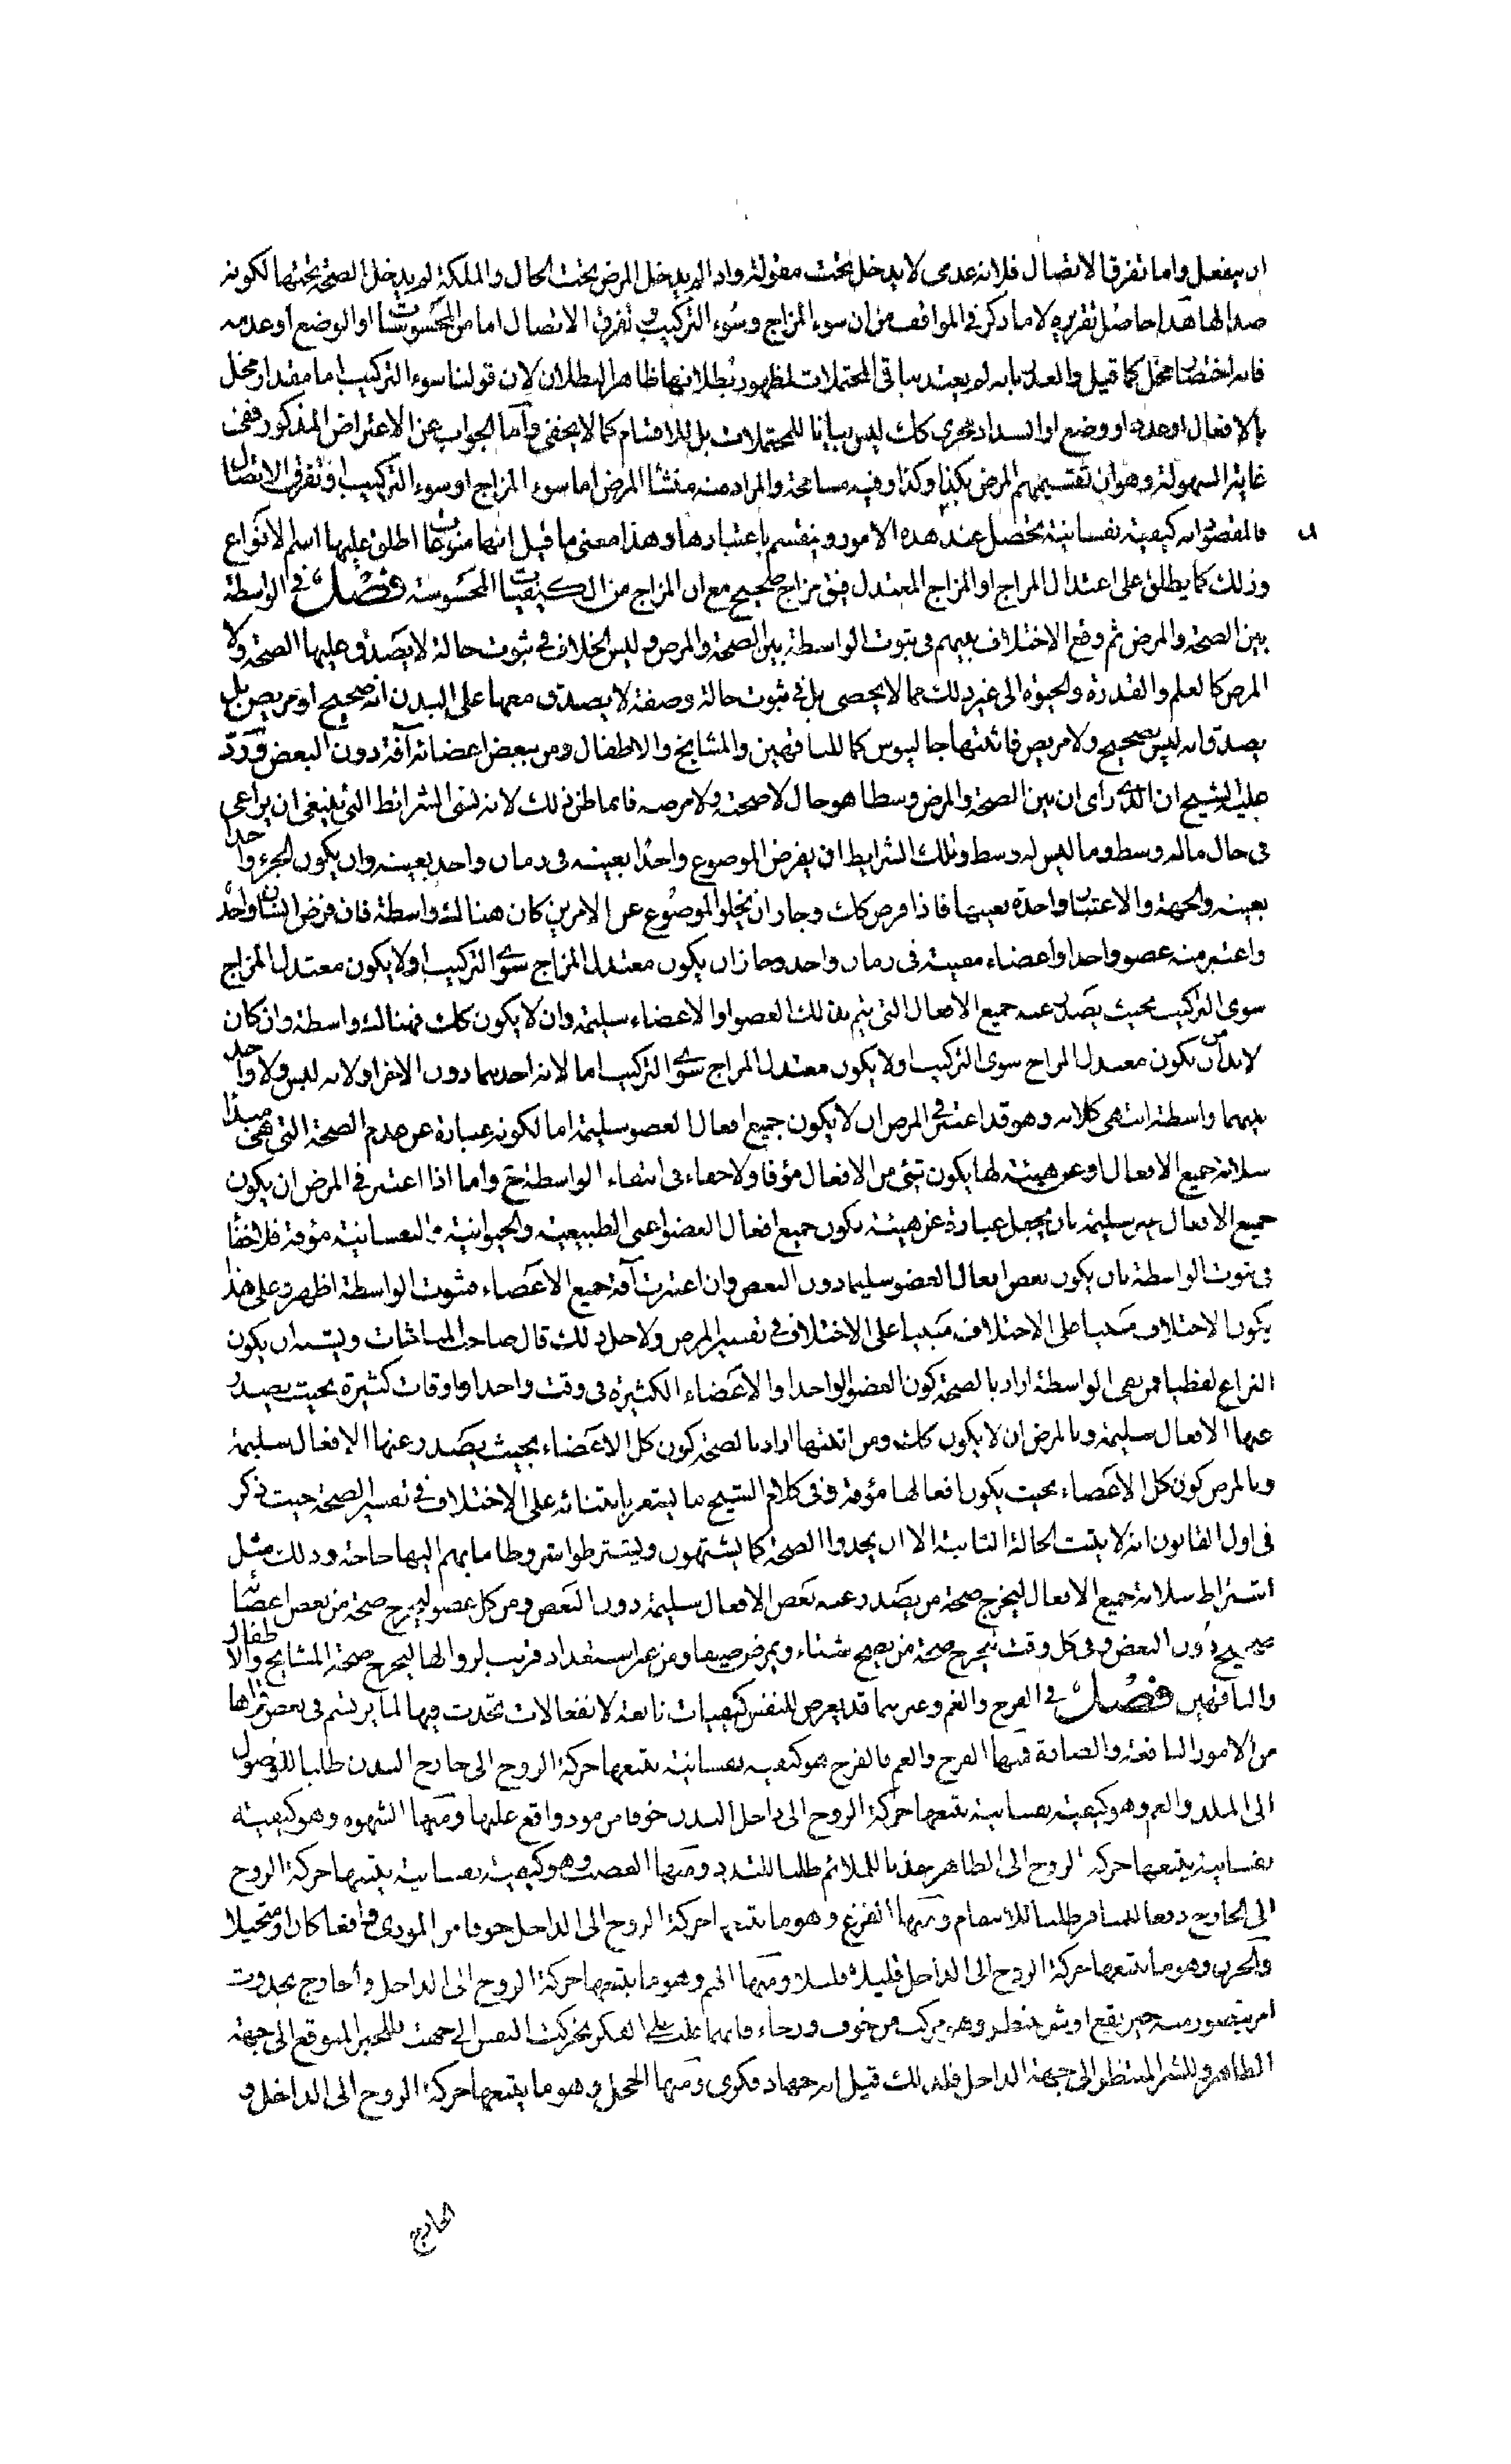 ان ينفعل واما تفرق الاتصال فلانه عدمى لا يدخل تحت مقولة واذا لم يدخل المرض تحت الحال والملكة لم يدخل الصحة تحتها لكونه
ضدا لها هذا حاصل تقريره لا ما ذكر فى المواقف من ان سوء المزاج وسوء التركيب وتفرق الاتصال اما من المحسوسات او الوضع او عدمه
فانه اختصار مخل كما قيل والعذر بانه لم يعتد بباقى المحتملات لظهور بطلانها ظاهر البطلان لان قولنا سوء التركيب اما مقدار مخل
بالافعال او عدد او وضع او انسداد مجرى كك ليس بيانا للمحتملات بل للاقسام كما لا يخفى وآما الجواب عن الاعتراض المذكور ففى
غاية السهولة وهو ان تقسيمهم المرض بكذا وكذا وفيه مسامحة والمراد منه منشأ المرض اما سوء المزاج او سوء التركيب او تفرق الاتصال
فالمقصود انه كيفية نفسانية تحصل عند هذه الامور وينقسم باعتبارها وهذا معنى ما قيل انها منوعات اطلق عليها اسم الانواع
وذلك كما يطلق على اعتدال المزاج او المزاج المعتدل فيق مزاج صحيح مع ان المزاج من الكيفيات المحسوسة فصل فى الواسطة
بين الصحة والمرض ثم وقع الاختلاف بينهم فى ثبوت الواسطة بين الصحة والمرض وليس الخلاف فى ثبوت حالة لا يصدق عليها الصحة ولا
المرض كالعلم والقدرة والحيوة الى غير ذلك مما لا يحصى بل فى ثبوت حالة وصفة لا يصدق معها على البدن انه صحيح او مريض بل
يصدق انه ليس بصحيح ولا مريض فاثبتها جالينوس كما للناقهين والمشايخ والاطفال ومن ببعض اعضائه آفة دون البعض ورد
عليه الشيخ ان الذى راى ان بين الصحة والمرض وسطا هو حال لا صحة ولا مرض فانما ظن ذلك لانه نسى الشرائط التى ينبغى ان يراعى
فى حال ماله وسط وما ليس له وسط وتلك الشرايط ان يفرض الموضوع واحدا بعينه فى زمان واحد بعينه وان يكون الجزء واحدا
بعينه والجهة والاعتبار واحدة بعينها فاذا فرض كك وجاز ان يخلو الموضوع عن الامرين كان هنالك واسطة فان فرض انسان واحد
واعتبر منه عضو واحد او اعضاء معينة فى زمان واحد وجاز ان يكون معتدل المزاج سوى التركيب او لا يكون معتدل المزاج
سوى التركيب بحيث يصدر عنه جميع الافعال التى يتم بذلك العضو او الاعضاء سليمة وان لا يكون كك فهنالك واسطة وان كان
لابد ان يكون معتدل المزاج سوى التركيب او لا يكون معتدل المزاج سوى التركيب اما لانه احدهما دون الاخر او لانه ليس ولا واحد
بينهما واسطة انتهى كلامه وهو قد اعتبر فى المرض ان لا يكون جميع افعال العضو سليمة اما لكونه عبارة عن عدم الصحة التى هى مبدأ
سلامة جميع الافعال او عن هيئة لها يكون شئ من الافعال مؤفا ولا خفاء فى انتفاء الواسطة ح واما اذا اعتبر فى المرض ان يكون
جميع الافعال غير سليمة بان يجعل عبارة عن هيئة يكون جميع افعال العضو اعنى الطبيعية والحيوانية والنفسانية مؤفة فلا خفاء
فى ثبوت الواسطة بان يكون بعض افعال العضو سليما دون البعض وان اعتبرت آفة جميع الاعضاء فثبوت الواسطة اظهر وعلى هذا
يكون الاختلاف مبنيا على الاختلاف فى تفسير المرض ولاجل ذلك قال صاحب المباحثات ويشبه ان يكون
النزاع لفظيا فمن نفى الواسطة اراد بالصحة كون العضو الواحد او الاعضاء الكثيرة فى وقت واحد او اوقات كثيرة بحيث يصدر
عنها الافعال سليمة وبالمرض ان لا يكون كك ومن اثبتها اراد بالصحة كون كل الاعضاء بحيث يصدر عنها الافعال سليمة
وبالمرض كون كل الاعضاء بحيث يكون افعالها مؤفة وفى كلام الشيخ ما يشعر بابتنائه على الاختلاف فى تفسير الصحة حيث ذكر
فى اول القانون انه لا يثبت الحالة الثالثة الا ان يحدوا الصحة كما يشتهون ويشترطوا شروطا ما بهم اليها حاجة وذلك مثل
اشتراط سلامة جميع الافعال ليخرج صحة من يصدر عنه بعض الافعال سليمة دون البعض ومن كل عضو ليخرج صحة من بعض اعضائه
صحيح دون البعض وفى كل وقت ليخرج صحة من يصح شتاء ويمرض صيفا ومن غير استعداد قريب لزوالها ليخرج صحة المشايخ والاطفال
والناقهين فصل فى الفرح والغم وغيرهما قد يعرض للنفس كيفيات تابعة لانفعالات تحدث فيها لما يرتسم فى بعض قواها
من الامور النافعة والضارة فمنها الفرح والغم فالفرح هو كيفية نفسانية يتبعها حركة الروح الى خارج البدن طلبا للوصول
الى الملذ والغم وهو كيفية نفسانية يتبعها حركة الروح الى داخل البدن خوفا من موذ واقع عليها ومنها الشهوه وهو كيفيته
نفسانية يتبعها حركة الروح الى الظاهر جذبا للملائم طلبا للتلذذ ومنها الغضب وهو كيفية نفسانية يتبعها حركة الروح
الى الخارج دفعا للمنافر طلبا للانتقام ومنها الفزع وهو ما يتبعها حركة الروح الى الداخل خوفا من الموذى واقعا كان او متخيلا
والحزن وهو ما يتبعها حركة الروح الى الداخل قليلا قليلا ومنها الهم وهو ما يتبعها حركة الروح الى الداخل والخارج بحدوث
امر يتصور منه خير يقع او شر ينتظر وهو مركب من خوف ورجاء فايهما غلب على الفكر تحركت النفس الى جهته فللخير المتوقع الى جهة
الظاهر وللشر المنتظر الى جهة الداخل فلذلك قيل انه جهاد فكرى ومنها الخجل وهو ما يتبعها حركة الروح الى الداخل و
الخارج